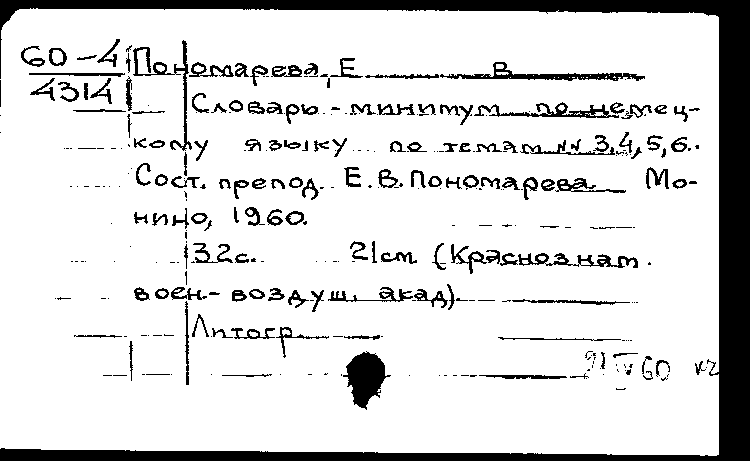 60-4
4314
Пономарева, Е В
Словарь-минимум по немец-
кому языку по темам №№ 3,4,5,6.
Сост. препод. Е.В.Пономарева. Мо-
нино, 1960.
32с. 21см (Краснознам.
воен.-воздуш. акад).
Литогр.
IV 60